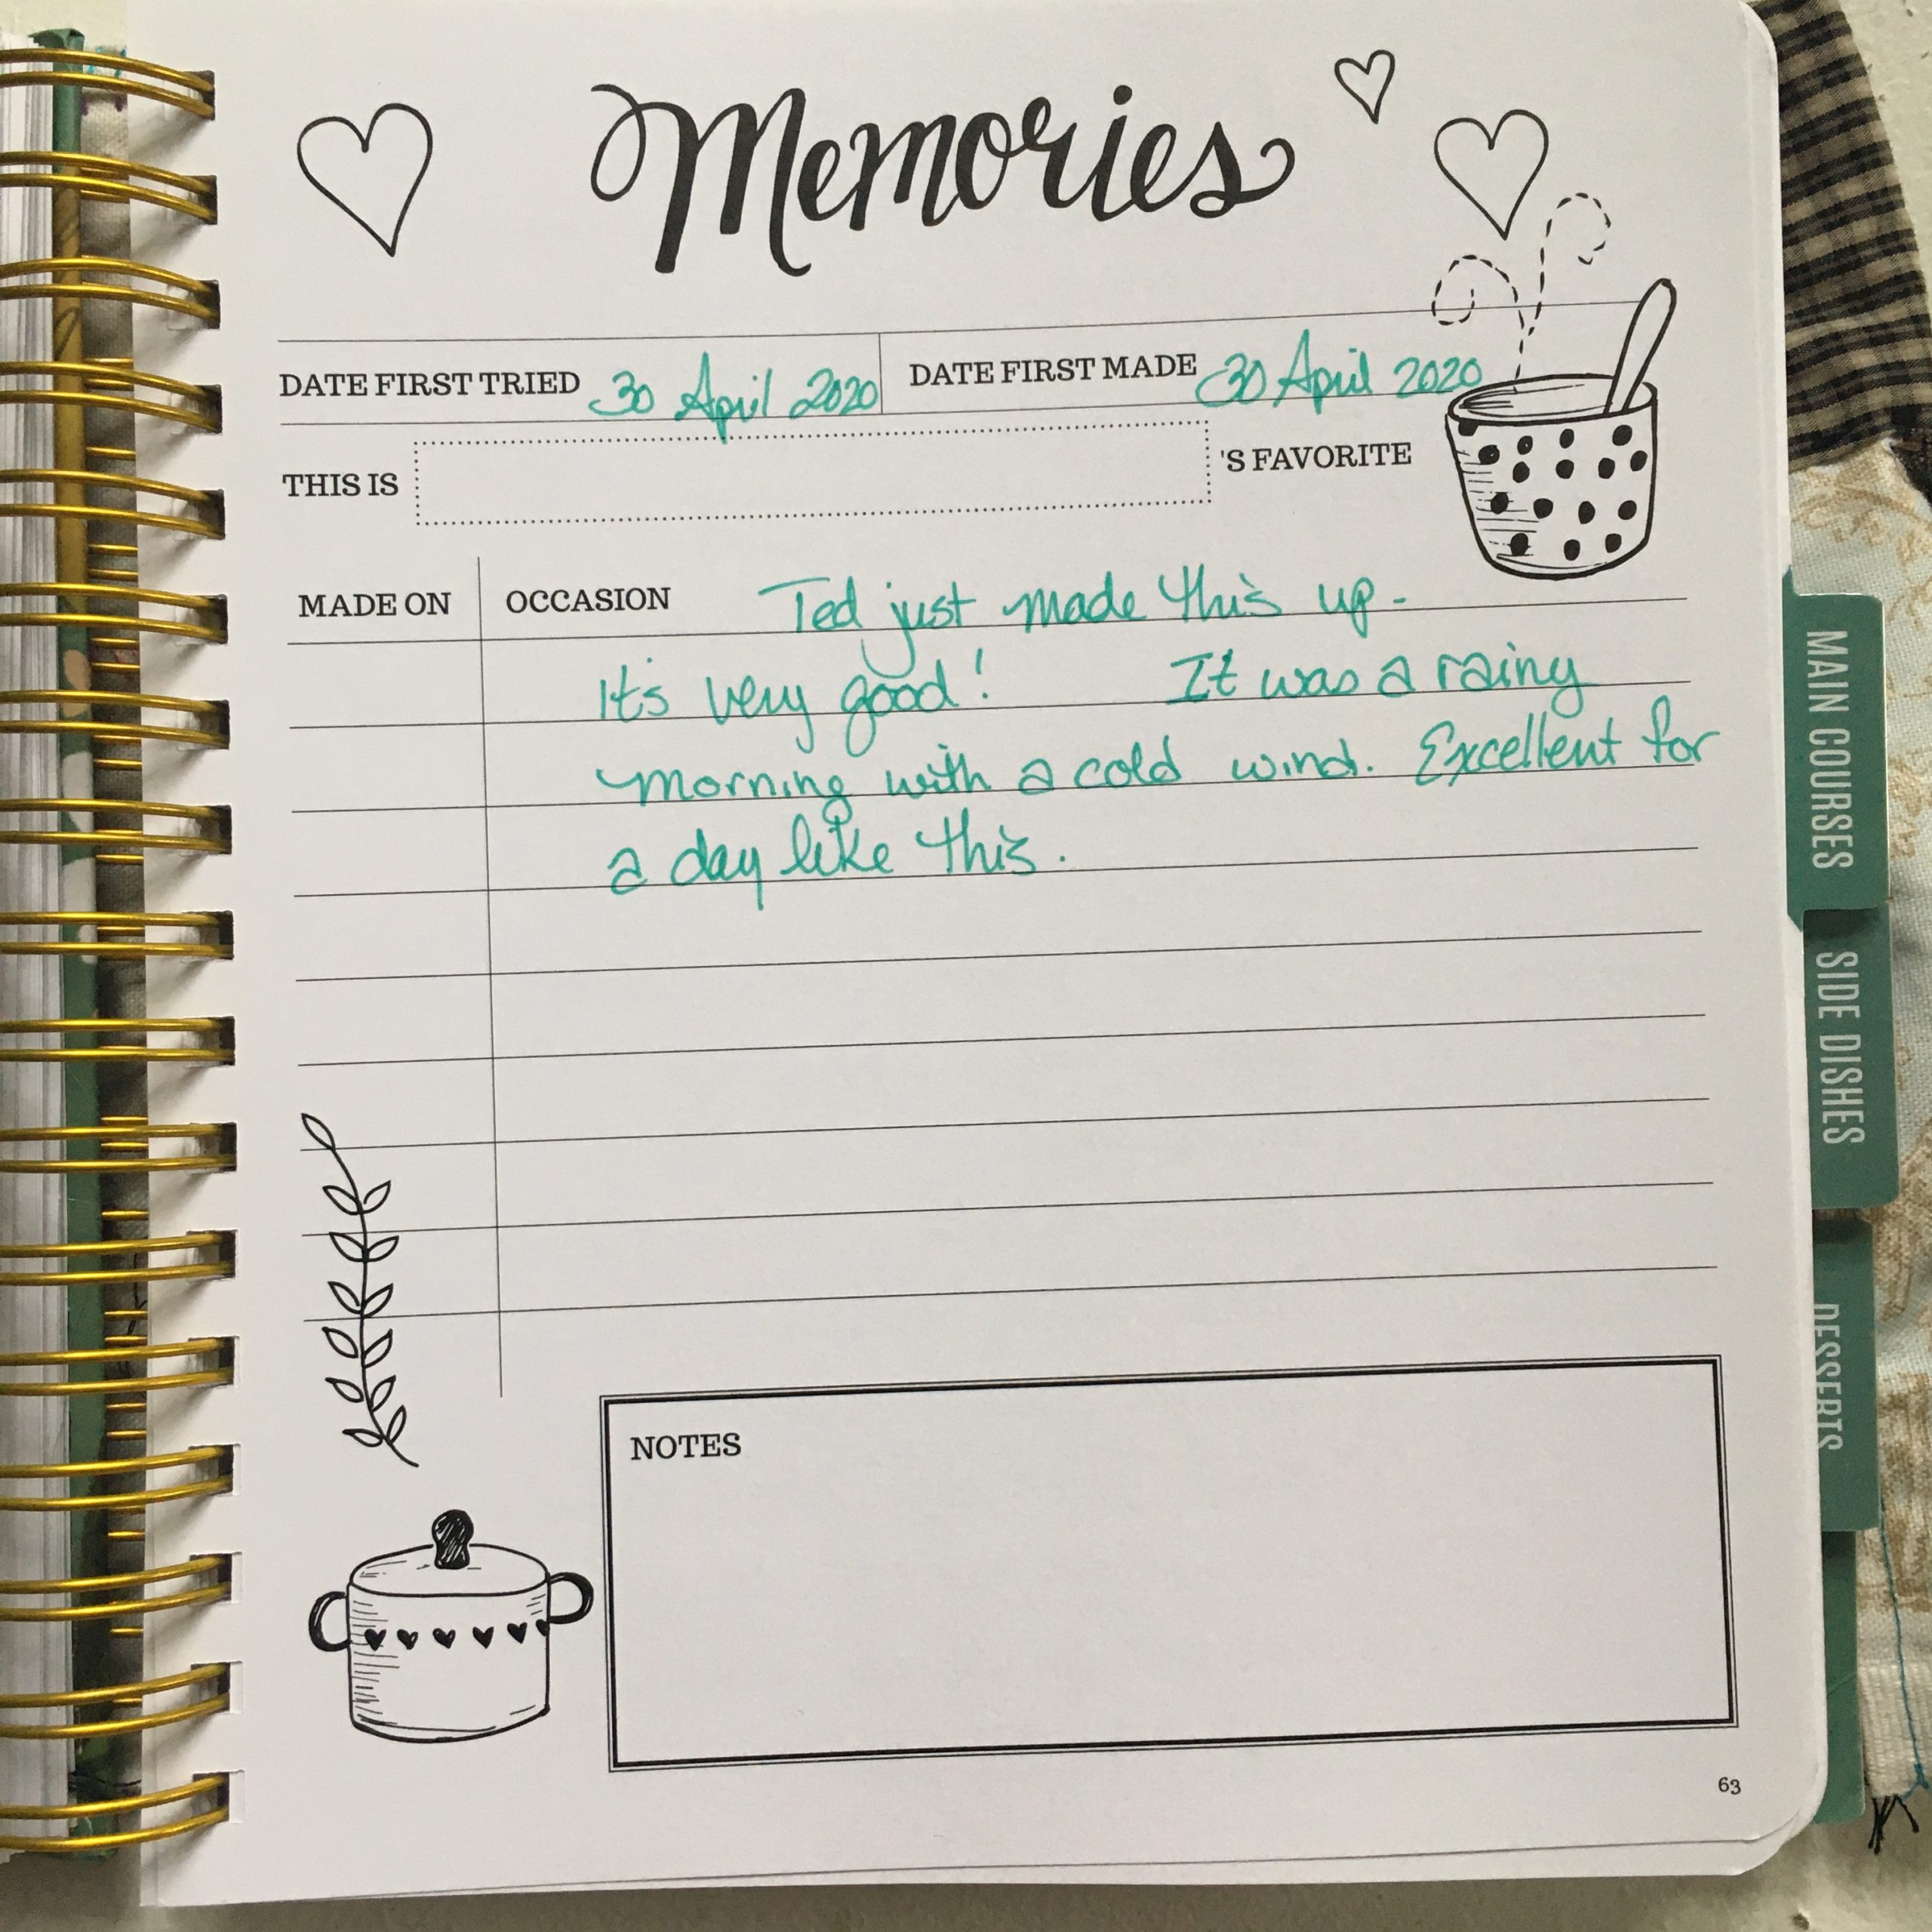 Memories
DATE FIRST TRIED 30 April 2020 DATE FIRST MADE 30 April 2020
THIS IS 'S FAVORITE
MADE ON OCCASION Ted just made this up -
It's very good! It was a rainy
morning with a cold wind. Excellent for
a day like this.
NOTES
63
MAIN COURSES
SIDE DISHES
DESSERTS